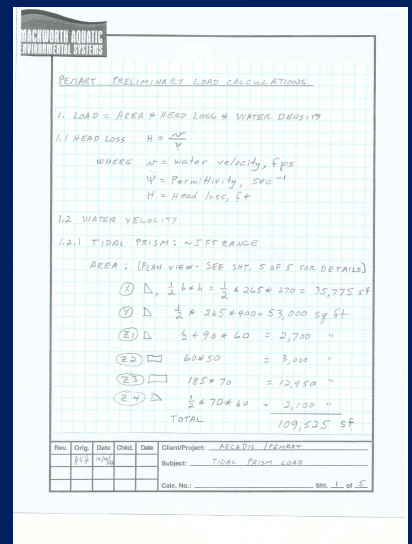 MACKWORTH AQUATIC
ENVIRONMENTAL SYSTEMS
PEMART PRELIMINARY LOAD CALCULATIONS
1. LOAD = AREA * HEAD LOSS * WATER DENSITY
1.1 HEAD LOSS H = v/Ψ
WHERE v = water velocity, fps
Ψ = Permittivity, sec⁻¹
H = Head loss, ft
1.2 WATER VELOCITY
1.2.1 TIDAL PRISM: ~5 FT RANGE
AREA: (PLAN VIEW- SEE SHT. 5 OF 5 FOR DETAILS)
X ½ b*h = ½ * 265 * 270 = 35,775 sf
Y ½ * 265 * 400 = 53,000 sq ft
Z1 ½ * 90 * 60 = 2,700 "
Z2 60*50 = 3,000 "
Z3 185 * 70 = 12,950 "
Z4 ½ * 70 * 60 = 2,100 "
TOTAL 109,525 sf
Rev. Orig. Date Chkd. Date Client/Project: ARCADIS / PEMART
Subject: TIDAL PRISM LOAD
Calc. No.: Sht. 1 of 5